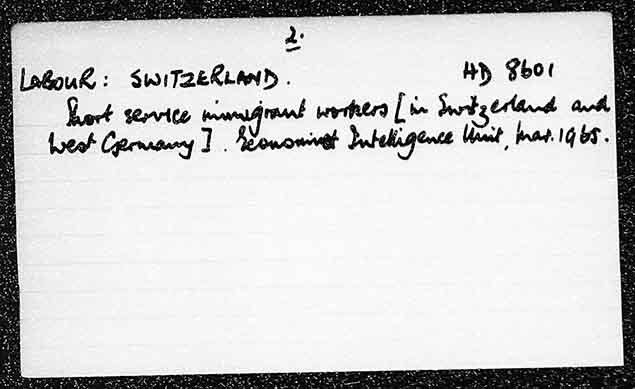 2.
LABOUR: SWITZERLAND. HD 8601
Short service immigrant workers [in Switzerland and
West Germany]. Economist Intelligence Unit, Mar. 1965.